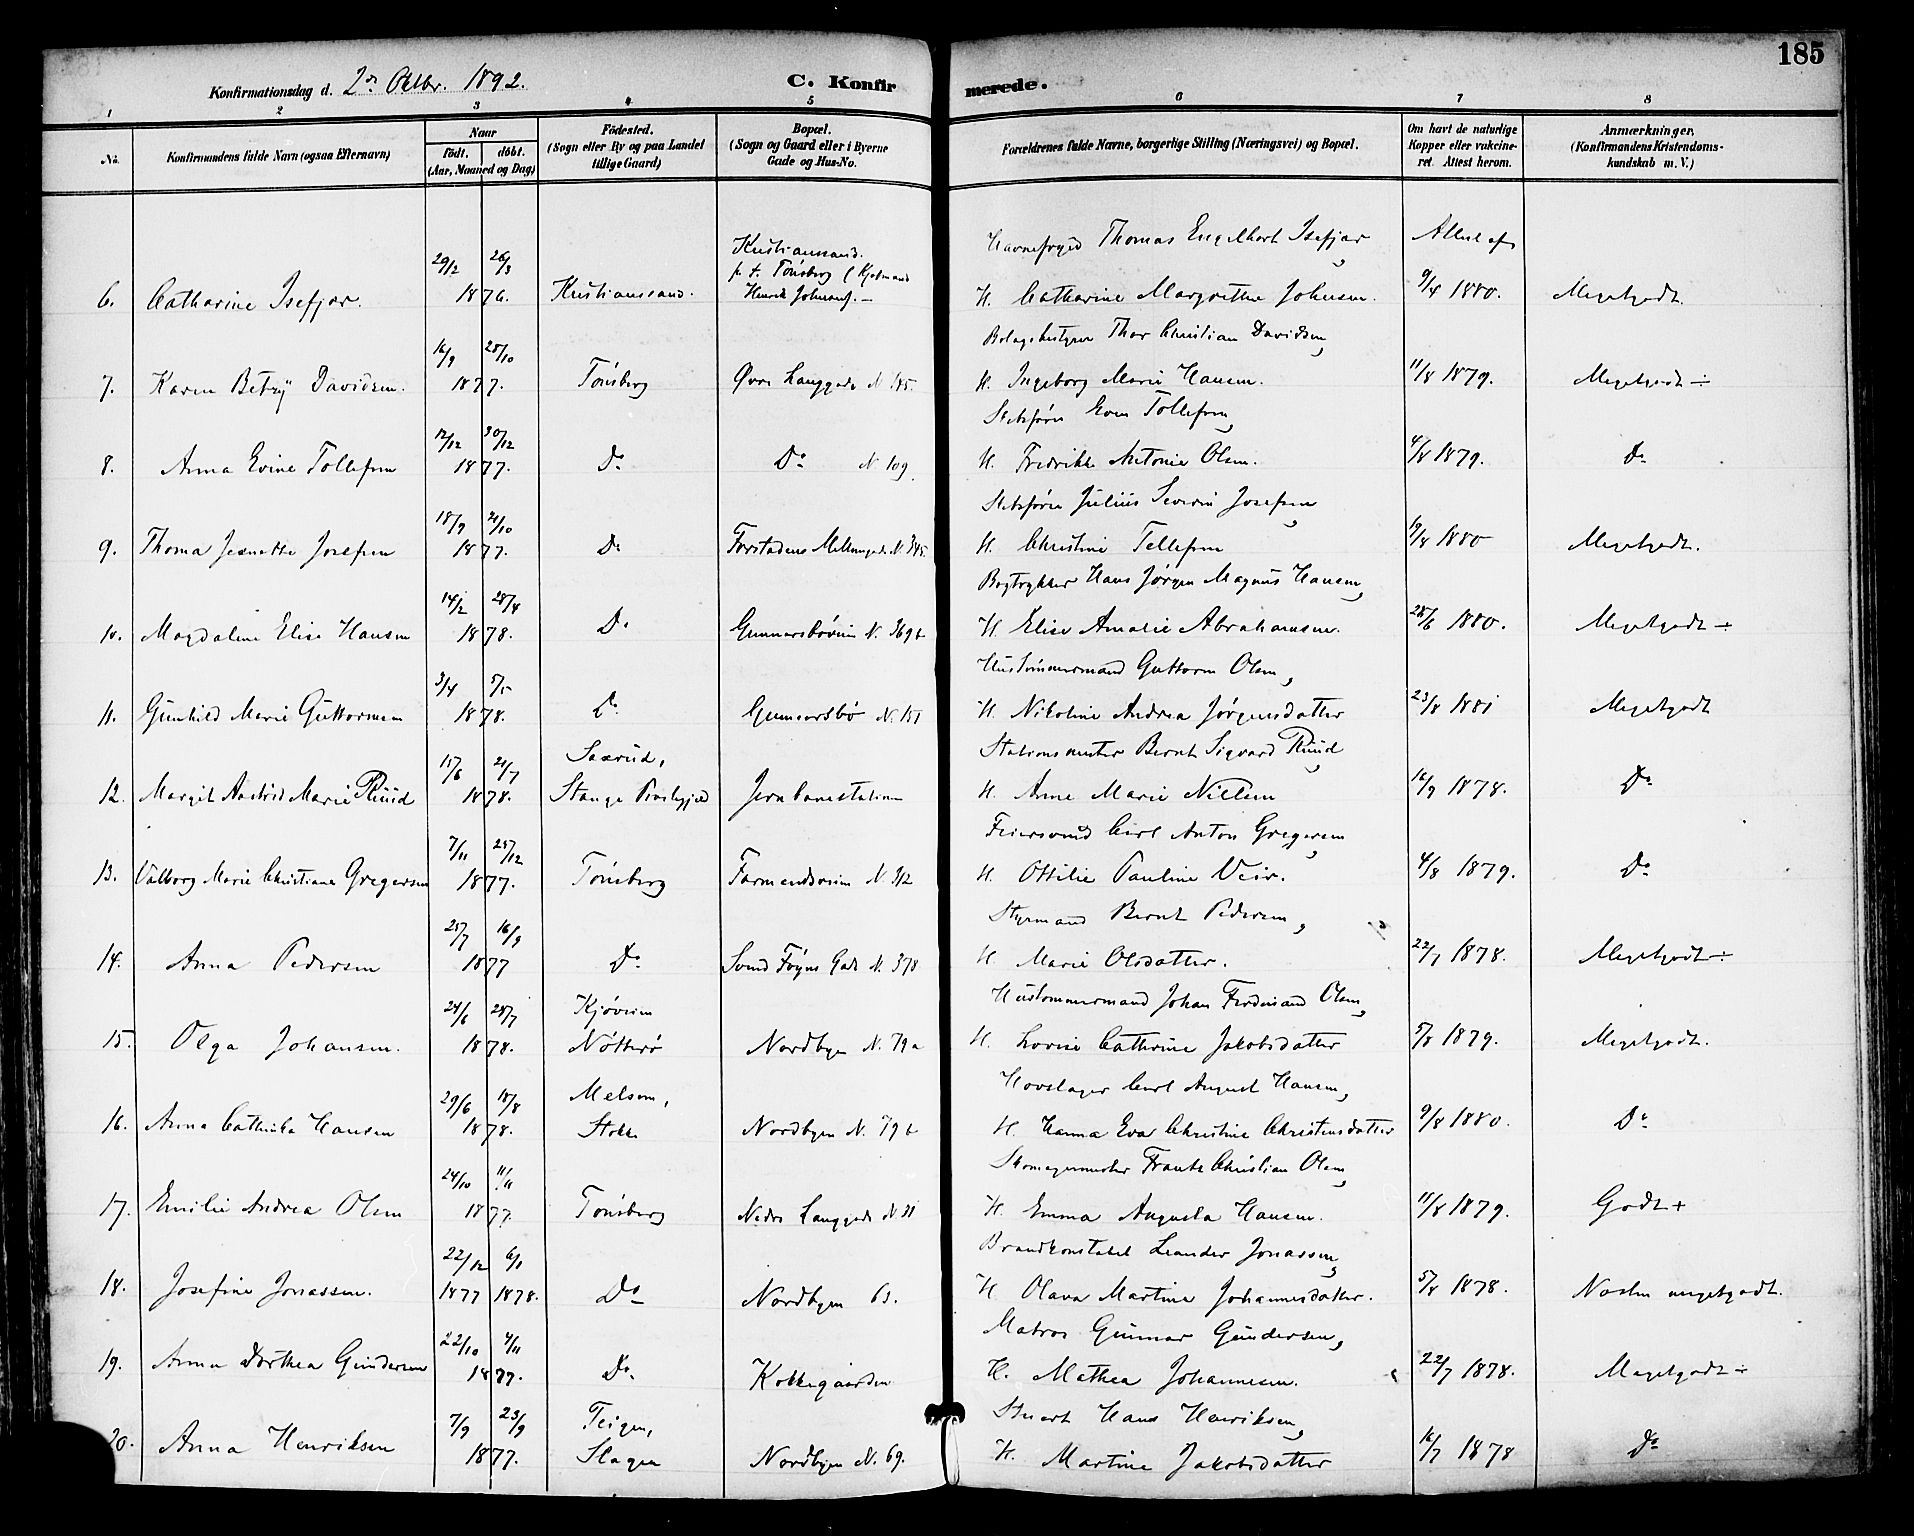 185
Konfirmationsdag d. 2den Oktbr. 1892.
C. Konfirmerede.
1 2 3 4 5 6 7 8
No. Konfirmandens fulde Navn (ogsaa Efternavn)
Naar født. døbt. (Aar, Maaned og Dag)
Fødested. (Sogn eller By og paa Landet tillige Gaard)
Bopæl. (Sogn og Gaard eller i Byerne Gade og Hus-No.
Forældrenes fulde Navne, borgerlige Stilling (Næringsvei) og Bopæl.
Om havt de naturlige Kopper eller vakcineret. Attest herom.
Anmærkninger. (Konfirmandens Kristendomskundskab m. V.)
Kristianssand.
Havnefoged Thomas Engelhart Isefjær, Attest af
29/2 26/3 p. t. Tønsberg (Kjøbmand
6. Catharine Isefjær. 1876. Kristianssand. Henrik Johnsens.— H. Catharine Margrethe Johnsen. 9/4 1880. Megetgodt.
Bolagsbestyrer Thor Christian Davidsen,
16/9 28/10
7. Karen Betzy Davidsen. 1877. Tønsberg Øvre Langgade N. 145. H. Ingeborg Marie Hansen. 11/8 1879. Megetgodt ÷
Even Tollefsen,
12/12 30/12
8. Anna Evine Tollefsen 1877. Do Do N. 109. H. Fredrikke Antonie Olsen. 4/8 1879. Do
Julius Severin Josefsen,
18/9 21/10
9. Thoma Jeanette Josefsen 1877. Do Forstadens Møllegade N. 345. H. Christine Tellefsen 19/4 1880 Megetgodt.
Bogtrykker Hans Jørgen Magnus Hansen,
14/2 28/4
10. Magdaline Elise Hansen 1878. Do Gunnarsbøveien N. 369 b H. Elise Amalie Abrahamsen. 28/6 1880. Megetgodt ÷
Hustømmermand Guttorm Olsen,
3/4 5/5
11. Gunhild Marie Guttormsen 1878. Do Gunnarsbø N. 151 H. Nikoline Andrea Jørgensdatter 23/8 1881 Megetgodt
Saxrud, Stationsmester Bernt Sigvard Ruud,
15/6 21/7
12. Margit Aastrid Marie Ruud 1878. Stange Præstegjeld Jernbanestationen H. Anne Marie Nielsen 16/9 1878. Do
Feiersvend Carl Anton Gregersen,
7/11 25/12
13. Valborg Marie Christiane Gregersen 1877. Tønsberg Farmandsveien N. 312 H. Ottilie Pauline Veir. 4/8 1879. Do
Styrmand Bernt Pedersen,
25/7 16/9
14. Anna Pedersen 1877 Do Svend Føyns Gade N. 378 H. Marie Olsdatter. 22/7 1878. Megetgodt ÷
Kjøveien Hustømmermand Johan Ferdinand Olsen,
24/6 28/7
15. Olga Johansen. 1878. Nøtterø Nordbyen N. 79 a H. Lovise Cathrine Jakobsdatter 5/8 1879. Megetgodt.
Melsom, Hovslager Carl August Hansen,
29/6 18/8
16. Anna Cathinka Hansen 1878. Stokke Nordbyen N. 79 b H. Hanna Eva Christine Christensdatter 9/8 1880. Do
Skomagermester Frantz Christian Olsen,
24/10 11/11
17. Emilie Andrea Olsen 1877. Tønsberg Nedre Langgade N. 31 H. Emma Augusta Hansen. 11/8 1879. Godt +
Brandkonstabel Leander Jonassen,
22/12 6/1
18. Josefine Jonassen. 1877 1878. Do Nordbyen 63. H. Olava Martine Johannesdatter. 5/8 1878. Næsten megetgodt.
Matros Gunnar Gundersen,
22/10 4/11
19. Anna Dorthea Gundersen 1877. Do Kokkegaarden H. Mathea Johannesen. 22/7 1878. Megetgodt ÷
Teigen, Stuert Hans Henriksen,
7/9 23/9
20. Anna Henriksen 1877. Slagen Nordbyen N. 69. H. Martine Jakobsdatter 16/7 1878 Do